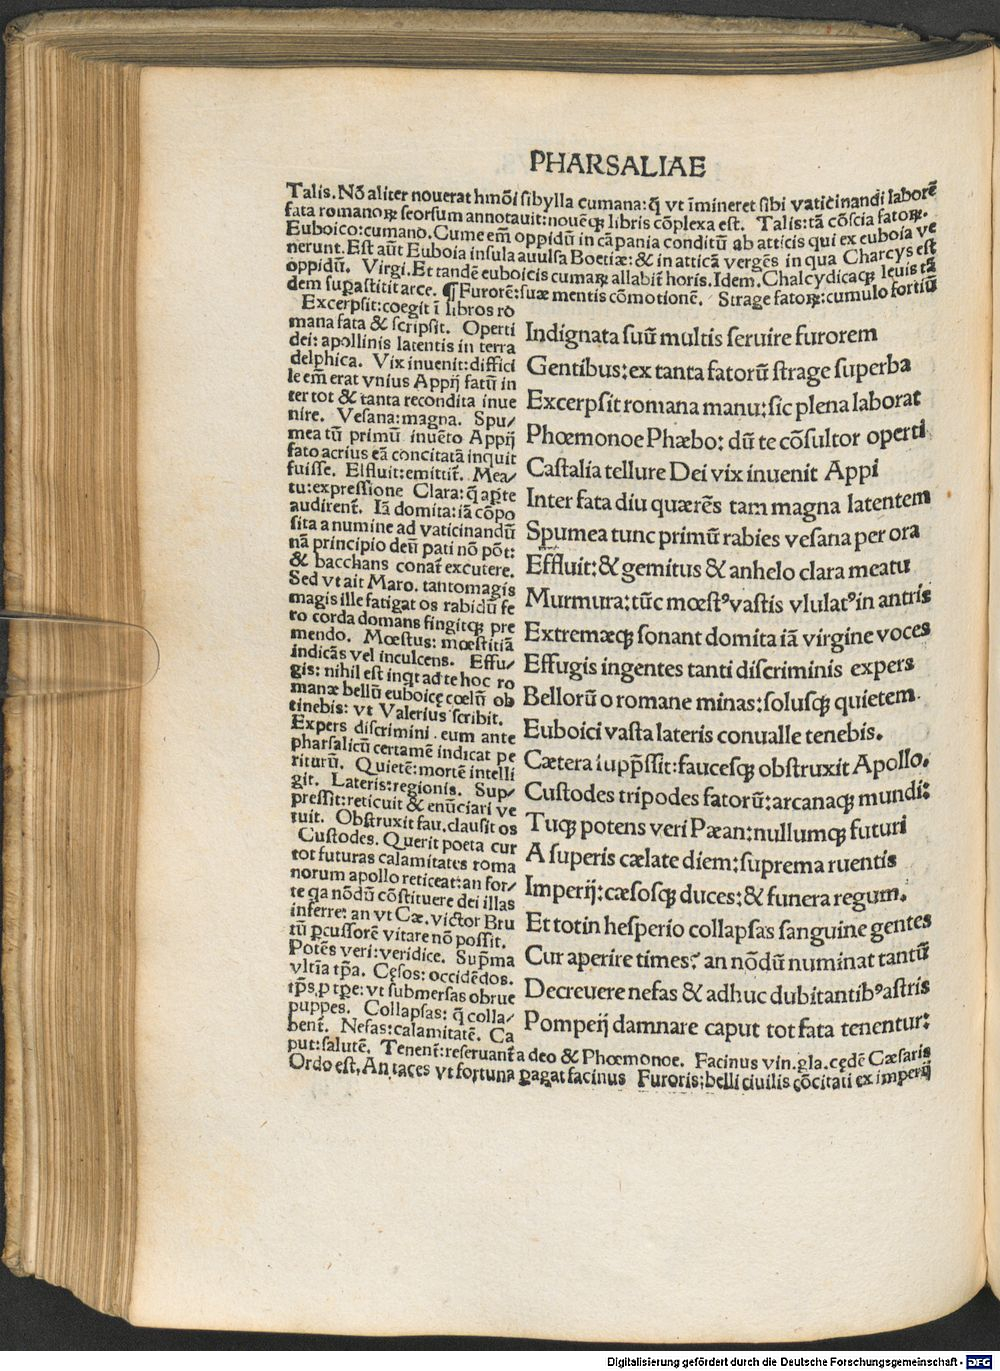 PHARSALIAE
Talis. Nō aliter nouerat hmōi sibylla cumana: q̄ vt īmineret sibi vaticinandi laborē
fata romanoꝝ seorsum annotauit: nouēqꝫ libris cōplexa est. Talis: tā cōscia fatoꝝ.
Euboico: cumano. Cume em̄ oppidū in cāpania conditū ab atticis qui ex euboia ve
nerunt. Est aūt Euboia insula auulsa Boetiæ: & in atticā vergēs in qua Charcys est
oppidū. Virgi. Et tandē euboicis cumaꝝ allabit̄ horis. Idem. Chalcydicaqꝫ leuis tā
dem suꝑastitit arce. ¶ Furorē: suæ mentis cōmotionē. Strage fatoꝝ: cumulo fortiū
Excerpsit: coegit ī libros ro
mana fata & scripsit. Operti
dei: apollinis latentis in terra
delphica. Vix inuenit: diffici
le em̄ erat vnius Appij fatū in
ter tot & tanta recondita inue
nire. Vesana: magna. Spu/
mea tū primū inuēto Appij
fato acrius eā concitatā inquit
fuisse. Elfluit: emittit̄. Mea/
tu: expressione Clara: q̄ aꝑte
audirent̄. Iā domita: iā cōpo
sita a numine ad vaticinandū
nā principio deū pati nō pōt:
& bacchans conat̄ excutere.
Sed vt ait Maro. tantomagis
magis ille fatigat os rabidū fe
ro corda domans fingitqꝫ pre
mendo. Mœstus: mœstitiā
indicās vel inculcens. Effu/
gis: nihil est inqt ad te hoc ro
manæ bellū euboicę cœlū ob
tinebis: vt Valerius scribit.
Expers discrimini. eum ante
pharsalicū certamē indicat pe
riturū. Quietē: mortē intelli
git. Lateris: regionis. Sup/
pressit: reticuit & enūciari ve
tuit. Obstruxit fau. clausit os
Custodes. Querit poeta cur
tot futuras calamitates roma
norum apollo reticeat: an for/
te qa nōdū cōstituere dei illas
inferre: an vt Cæ. victor Bru
tū ꝑcussorē vitare nō possit.
Potēs veri: veridice. Sup̄ma
vltīa tp̄a. Cęsos: occidēdos.
tp̄s. p tp̄e: vt submersas obrue
puppes. Collapsas: q̄ colla/
bent̄. Nefas: calamitatē. Ca
put: salutē. Tenent̄: reseruant̄ a deo & Phœmonoe. Facinus vin. gla. cędē Cæsaris
Ordo est, An taces vt fortuna ꝑagat facinus Furoris; belli ciuilis cōcitati ex imperij
Indignata suū multis seruire furorem
Gentibus: ex tanta fatorū strage superba
Excerpsit romana manu: sic plena laborat
Phœmonoe Phæbo: dū te cōsultor operti
Castalia tellure Dei vix inuenit Appi
Inter fata diu quærēs tam magna latentem
Spumea tunc primū rabies vesana per ora
Effluit: & gemitus & anhelo clara meatu
Murmura: tūc mœstꝰ vastis vlulatꝰ in antris
Extremæqꝫ sonant domita iā virgine voces
Effugis ingentes tanti discriminis expers
Bellorū o romane minas: solusqꝫ quietem.
Euboici vasta lateris conualle tenebis.
Cætera supp̄ssit: faucesqꝫ obstruxit Apollo.
Custodes tripodes fatorū: arcanaqꝫ mundi:
Tuqꝫ potens veri Pæan: nullumqꝫ futuri
A superis cælate diem: suprema ruentis
Imperij: cæsosqꝫ duces: & funera regum.
Et totin hesperio collapsas sanguine gentes
Cur aperire times? an nōdū numinat tantū
Decreuere nefas & adhuc dubitantibꝰ astris
Pompeij damnare caput tot fata tenentur:
Digitalisierung gefördert durch die Deutsche Forschungsgemeinschaft - DFG